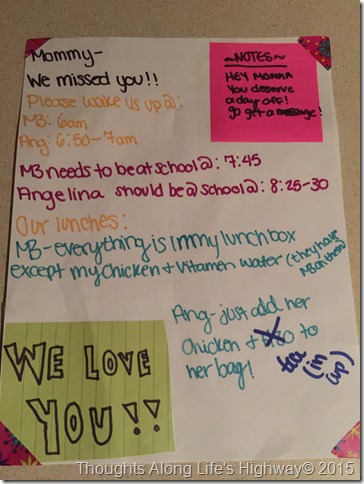 Mommy-
We missed you!!
Please wake us up @:
MB: 6am
Ang: 6:50-7am
~NOTES~
HEY MOMMA
You deserve
a day off!
go get a message!
MB needs to be at school @: 7:45
Angelina should be @ school @: 8:25-30
Our lunches:
MB-everything is in my lunch box
except my chicken + Vitamen water (they have
MB on them)
Ang-just add her
chicken + to
her bag!
tea
(in
cup)
WE LOVE
YOU!!
Thoughts Along Life's Highway© 2015